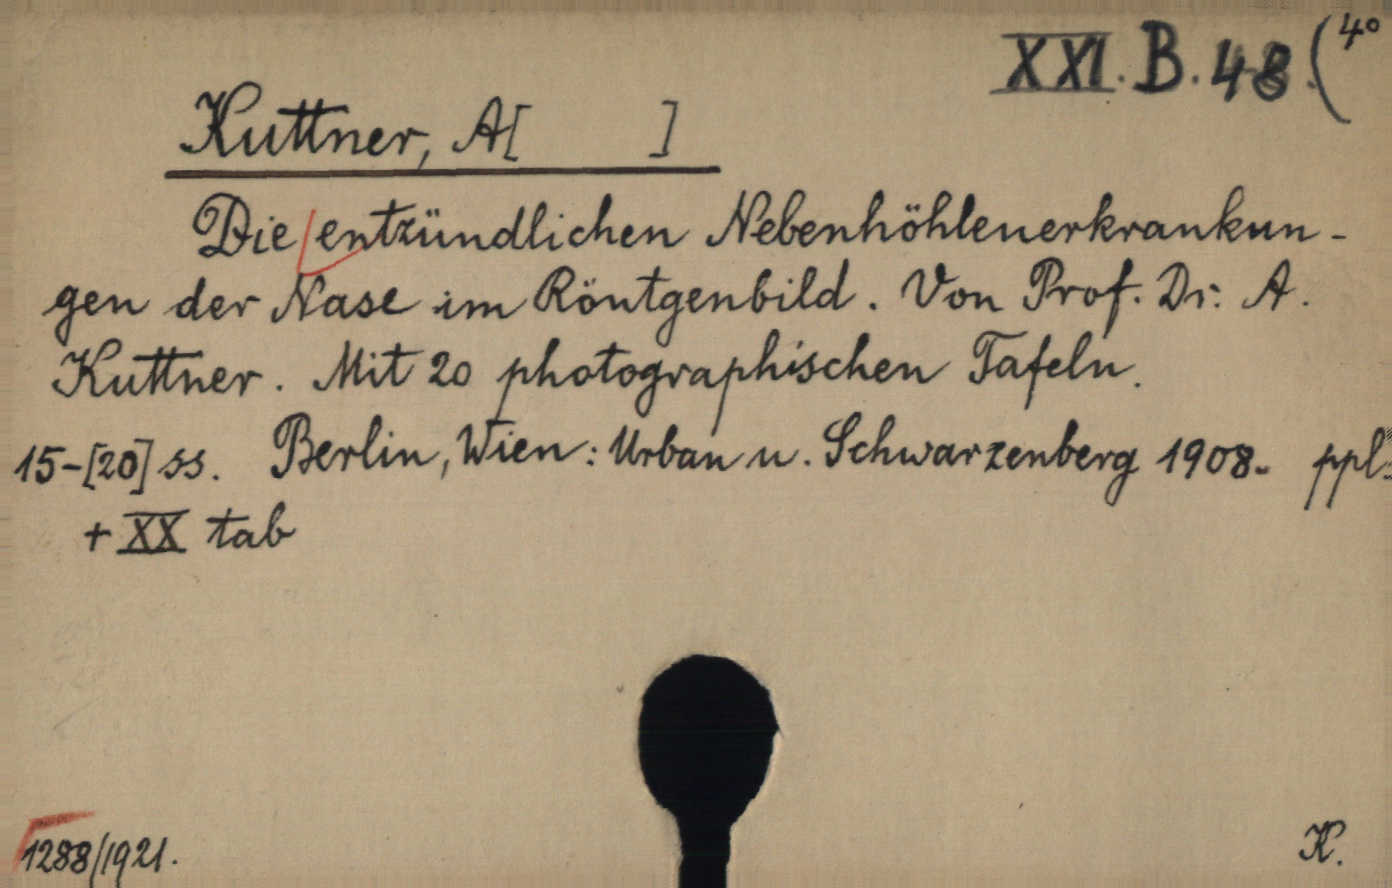 XXI. B. 48. (4°
Kuttner, A[ ]
Die entzündlichen Nebenhöhlenerkrankun-
gen der Nase im Röntgenbild. Von Prof. Dr. A.
Kuttner. Mit 20 photographischen Tafeln.
15-[20] ss. Berlin, Wien: Urban u. Schwarzenberg 1908. ppl.
+ XX tab
1288/1921.
K.